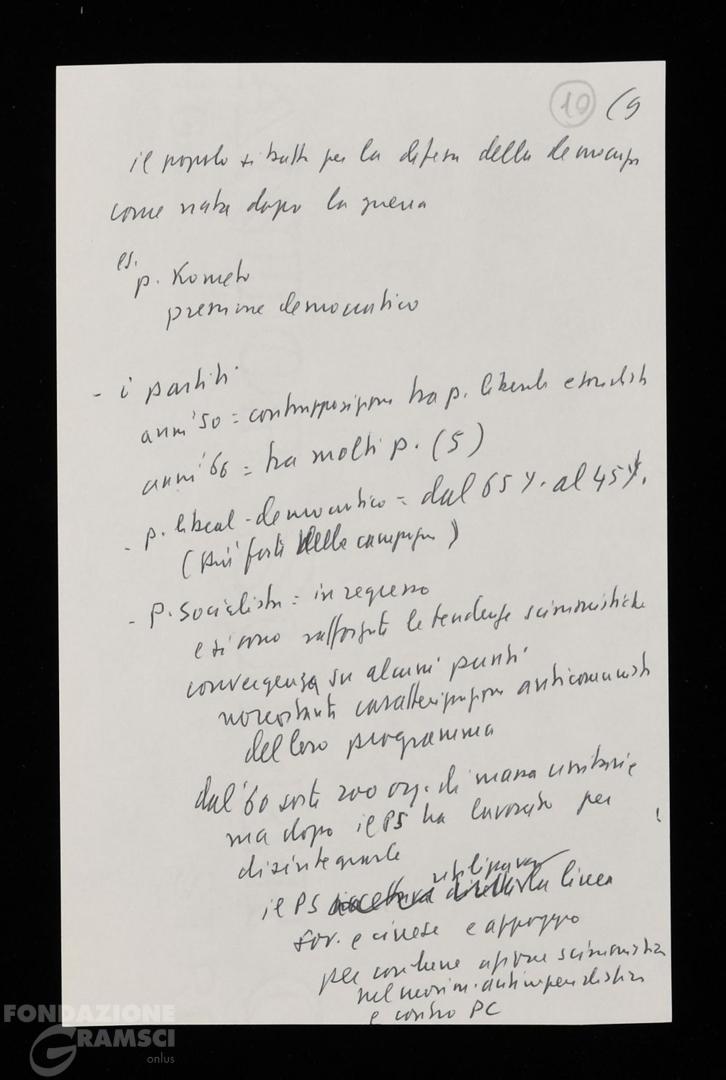 10 (9
il popolo si batte per la difesa della democrazia
come nata dopo la guerra
es. p. Kometo
pressione democratico
- i partiti
anni '50 = contrapposizione tra p. liberale e socialista
anni '60 = tra molti p. (5)
- p. liberal-democratico = dal 65% al 45%.
(più forti nelle campagne)
- P. Socialista = in regresso
e si sono rafforzate le tendenze scissionistiche
convergenza su alcuni punti
nonostante caratterizzazione anticomunista
del loro programma
dal '60 sorte 200 org. di massa unitarie
ma dopo il PS ha lavorato per
disintegrarle
il PS linea
sov. e cinese e appoggio
per condurre azione scissionista
nel movim. antimperialistico
e contro PC
FONDAZIONE
GRAMSCI
onlus